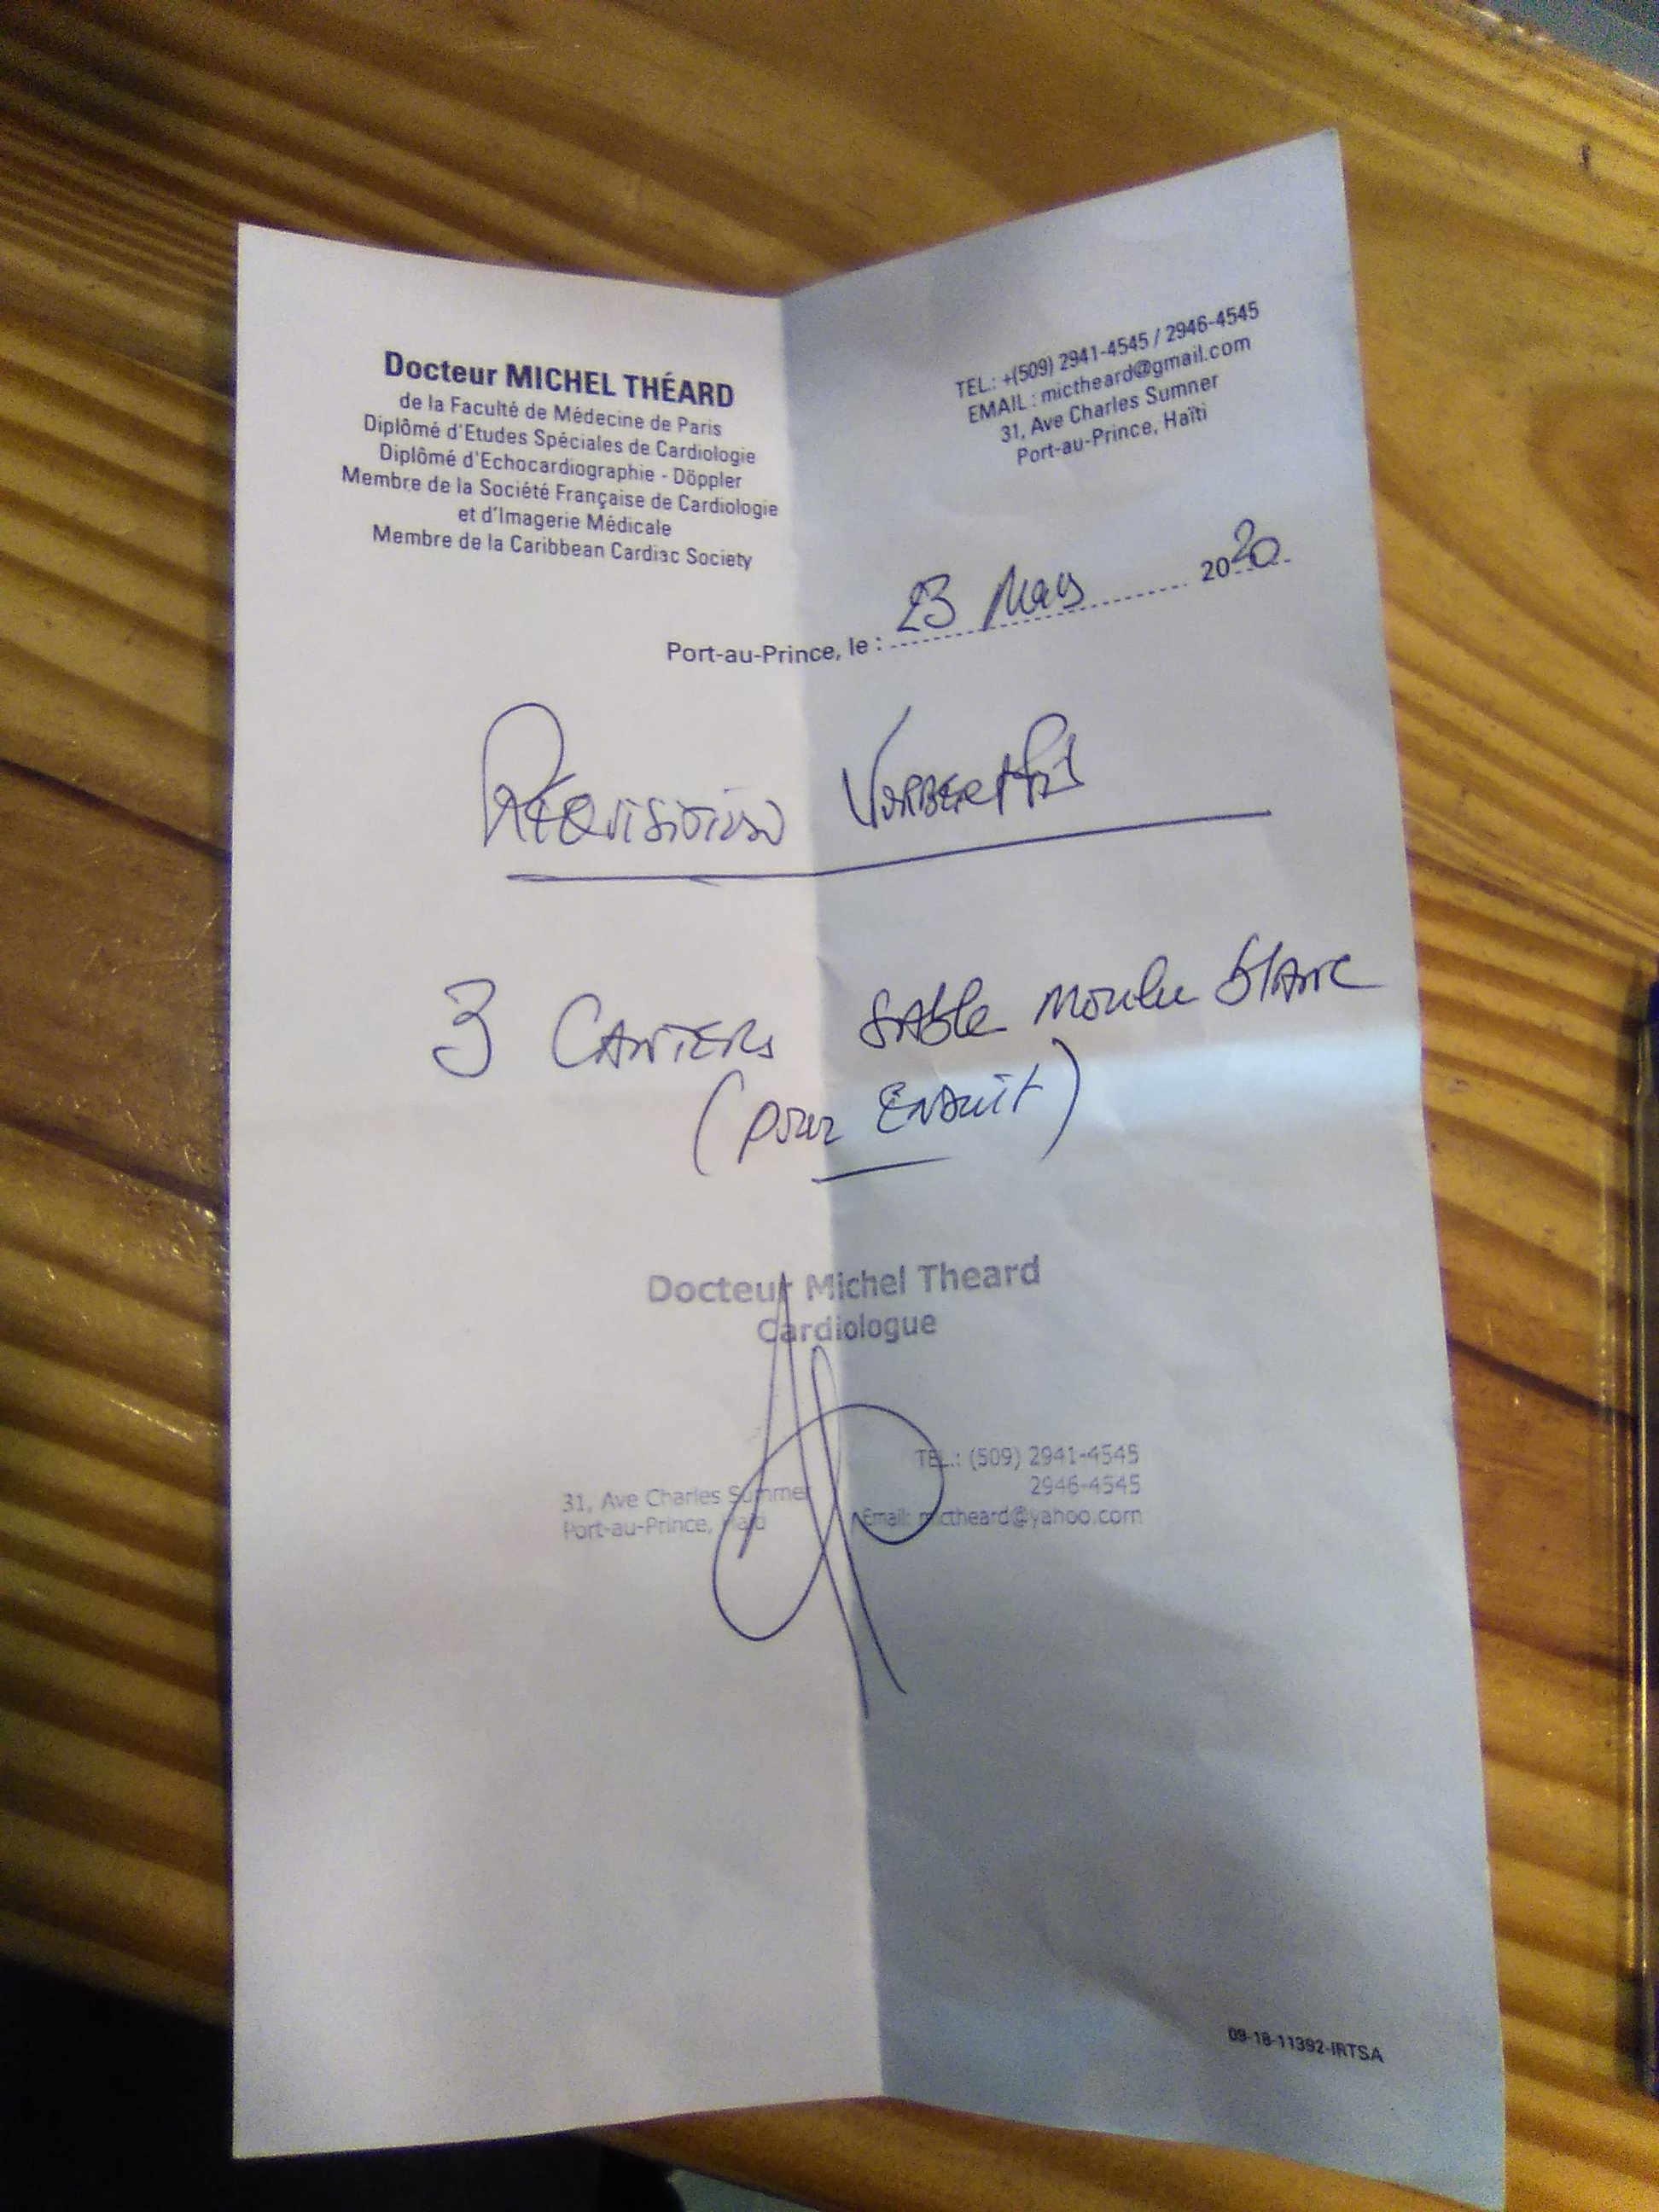 Docteur MICHEL THÉARD
de la Faculté de Médecine de Paris
Diplômé d'Etudes Spéciales de Cardiologie
Diplômé d'Echocardiographie - Döppler
Membre de la Société Française de Cardiologie
et d'Imagerie Médicale
Membre de la Caribbean Cardiac Society
TEL.: +(509) 2941-4545 / 2946-4545
EMAIL : mictheard@gmail.com
31, Ave Charles Sumner
Port-au-Prince, Haïti
Port-au-Prince, le : 23 Mars 2020
Réquisition
3 Camiers sable moulu blanc
(pour Enduit)
Docteur Michel Theard
Cardiologue
31, Ave Charles Summer
Port-au-Prince, Haiti
TEL.: (509) 2941-4545
2946-4545
Email: mictheard@yahoo.com
09-18-11392-IRTSA